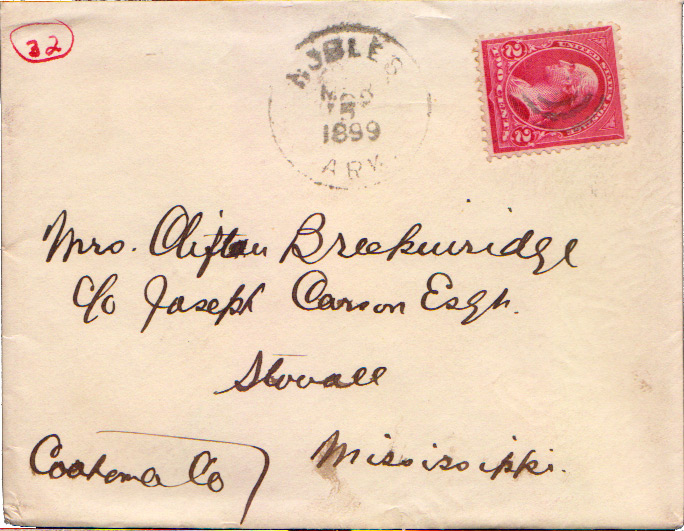 32
NOBLES
MAR
1899
ARK.
UNITED STATES POSTAGE
2 TWO CENTS 2
Mrs. Clifton Breckinridge
c/o Joseph Carson Esqr.
Stovall
Mississippi.
Coahoma Co